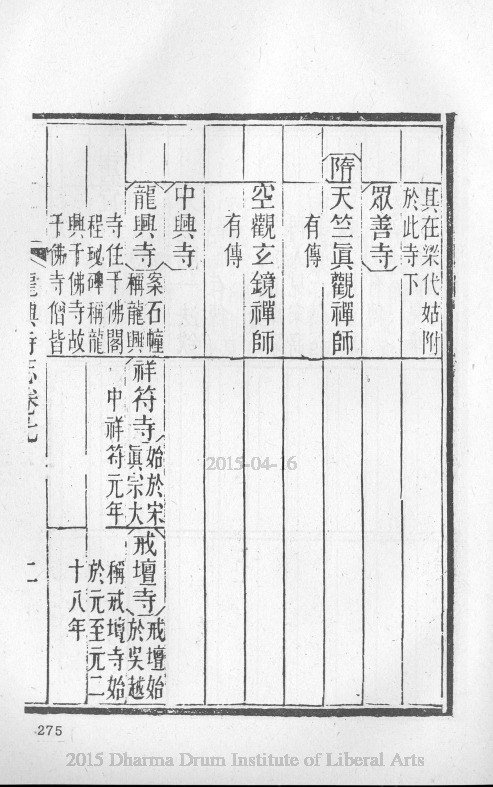 其在梁代姑附
於此寺下
眾善寺
隋天竺眞觀禪師
有傳
空觀玄鏡禪師
有傳
中興寺
龍興寺
案石幢
稱龍興
寺住千佛閣
程珌碑稱龍
興千佛寺故
千佛寺僧皆
祥符寺
始於宋
眞宗大
中祥符元年
戒壇寺
戒壇始
於吳越
稱戒壇寺始
於元至元二
十八年
龍興寺志卷七
二
275
2015-04-16
2015 Dharma Drum Institute of Liberal Arts